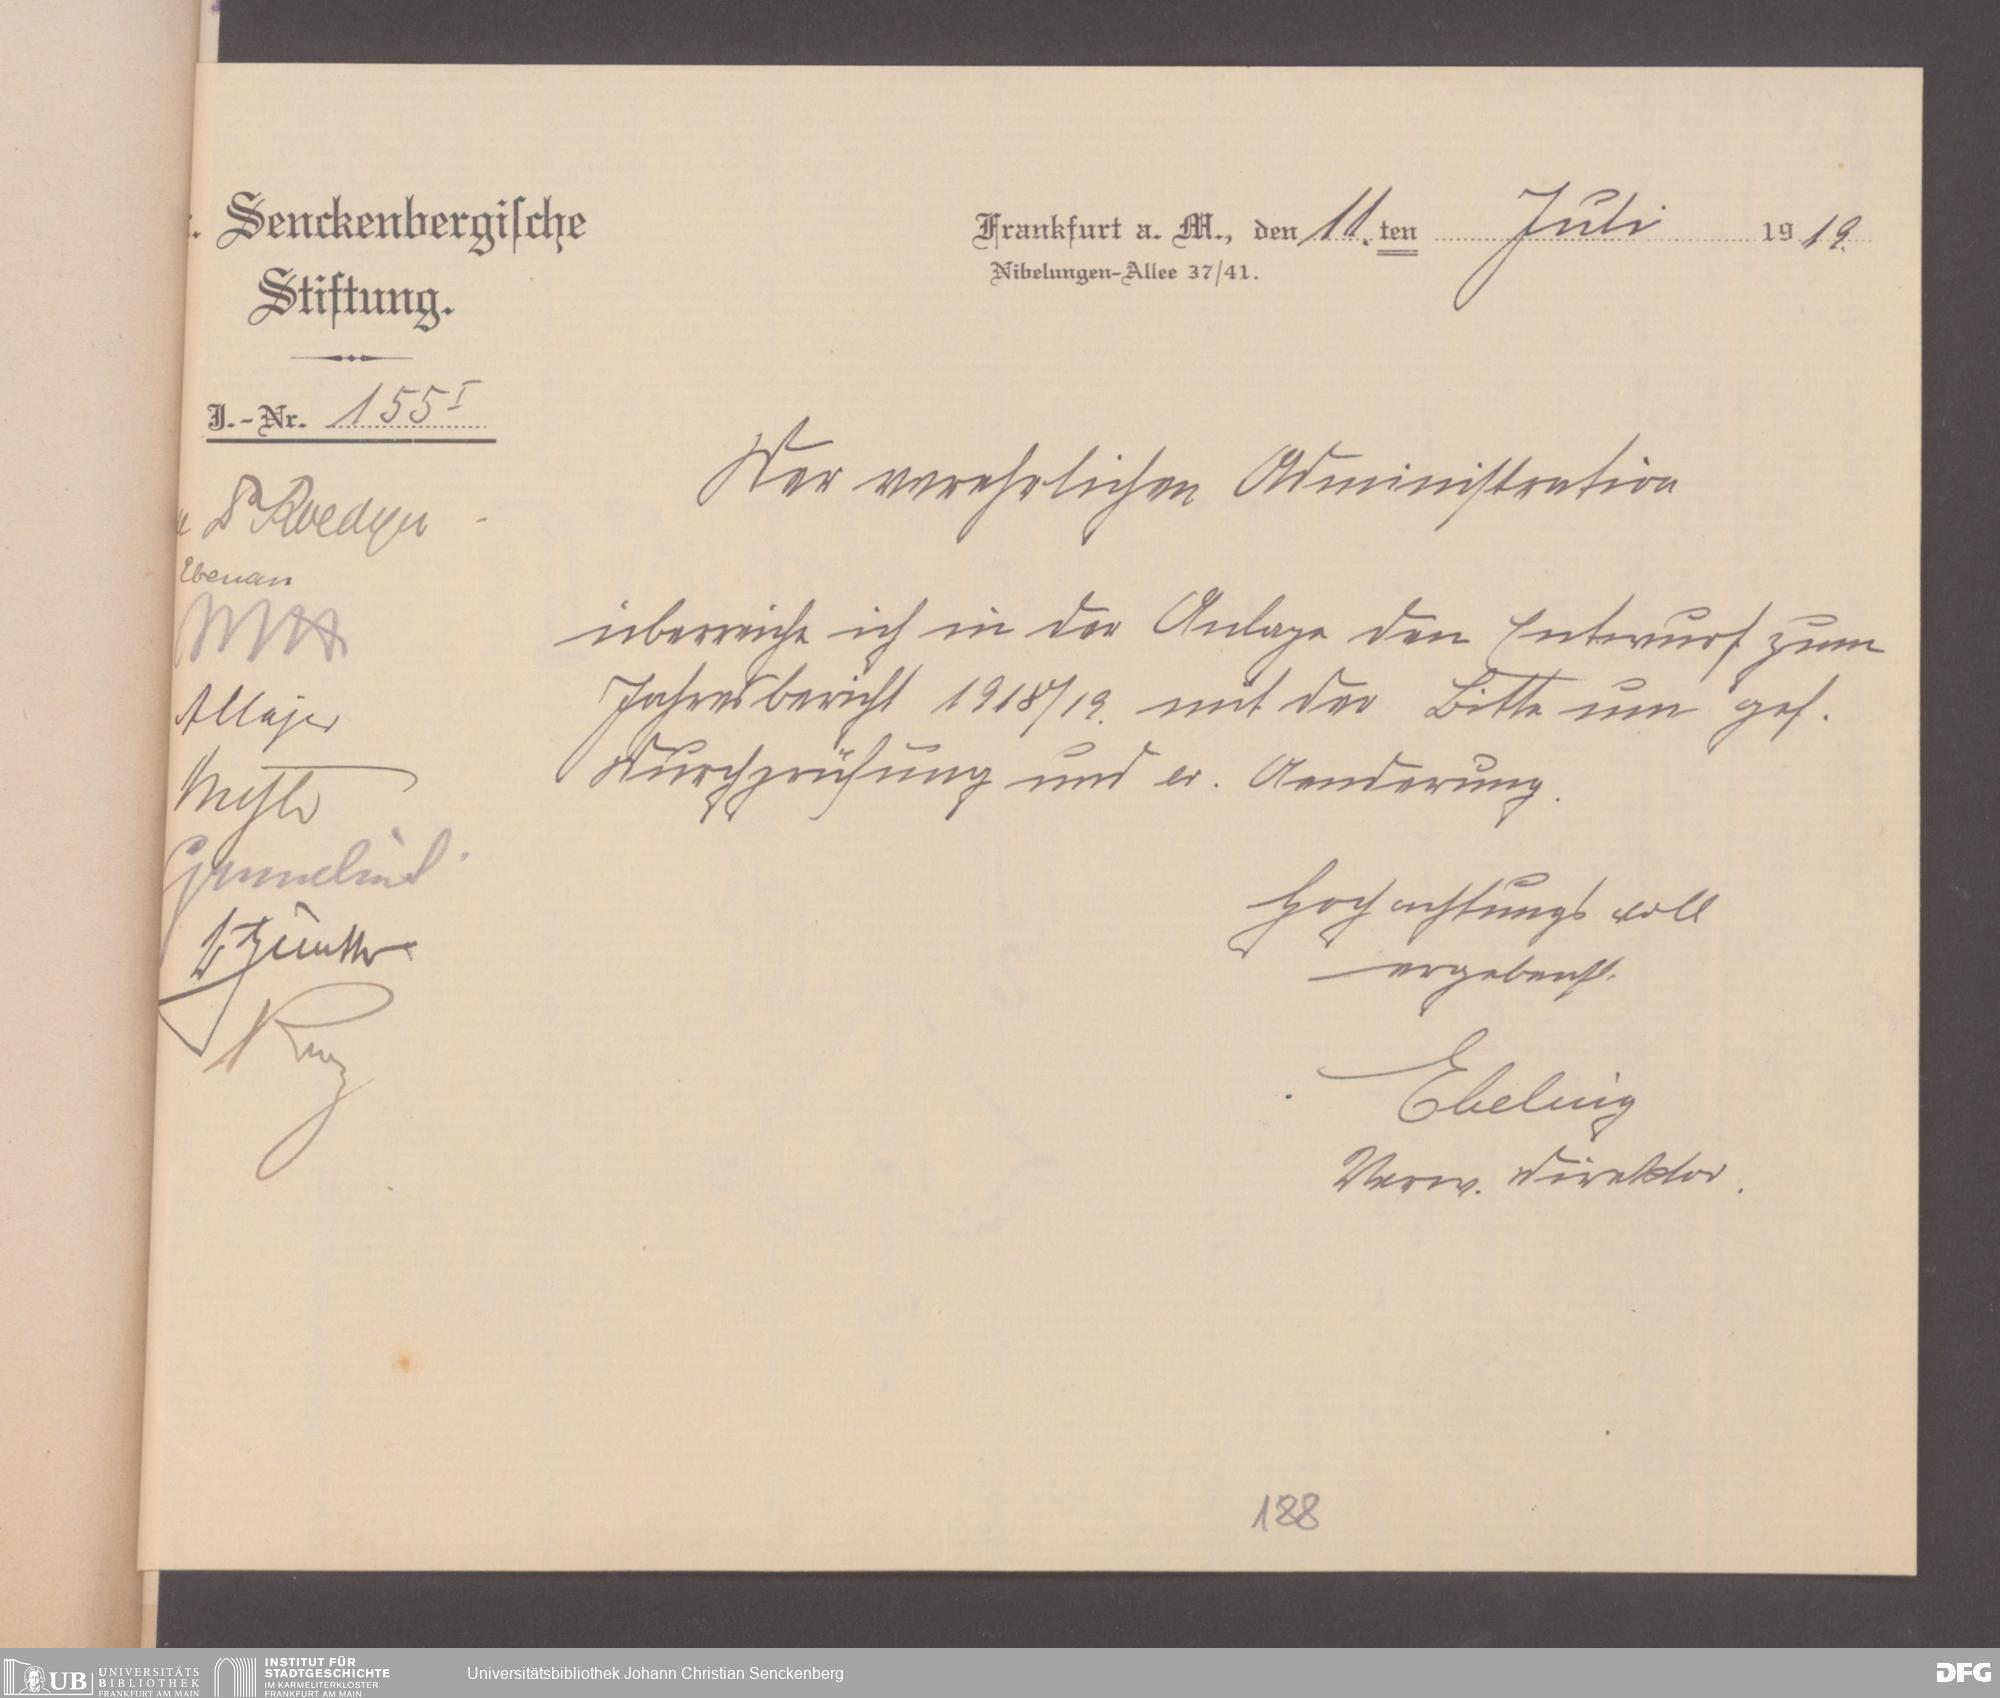 Senckenbergische
Stiftung.
Frankfurt a. M., den 11. ten Juli 1919.
Nibelungen-Allee 37/41.
J.-Nr. 155 I
Der verehrlichen Administration
überreiche ich in der Anlage den Entwurf zum
Jahresbericht 1918/19. mit der Bitte um gef.
Durchprüfung und ev. Aenderung.
Hochachtungsvoll
ergebenst
Ebeling
Verw. Direktor.
Dr Roediger
Ebenau
Günther
188
UB UNIVERSITÄTS
BIBLIOTHEK
FRANKFURT AM MAIN
INSTITUT FÜR
STADTGESCHICHTE
IM KARMELITERKLOSTER
FRANKFURT AM MAIN
Universitätsbibliothek Johann Christian Senckenberg
DFG